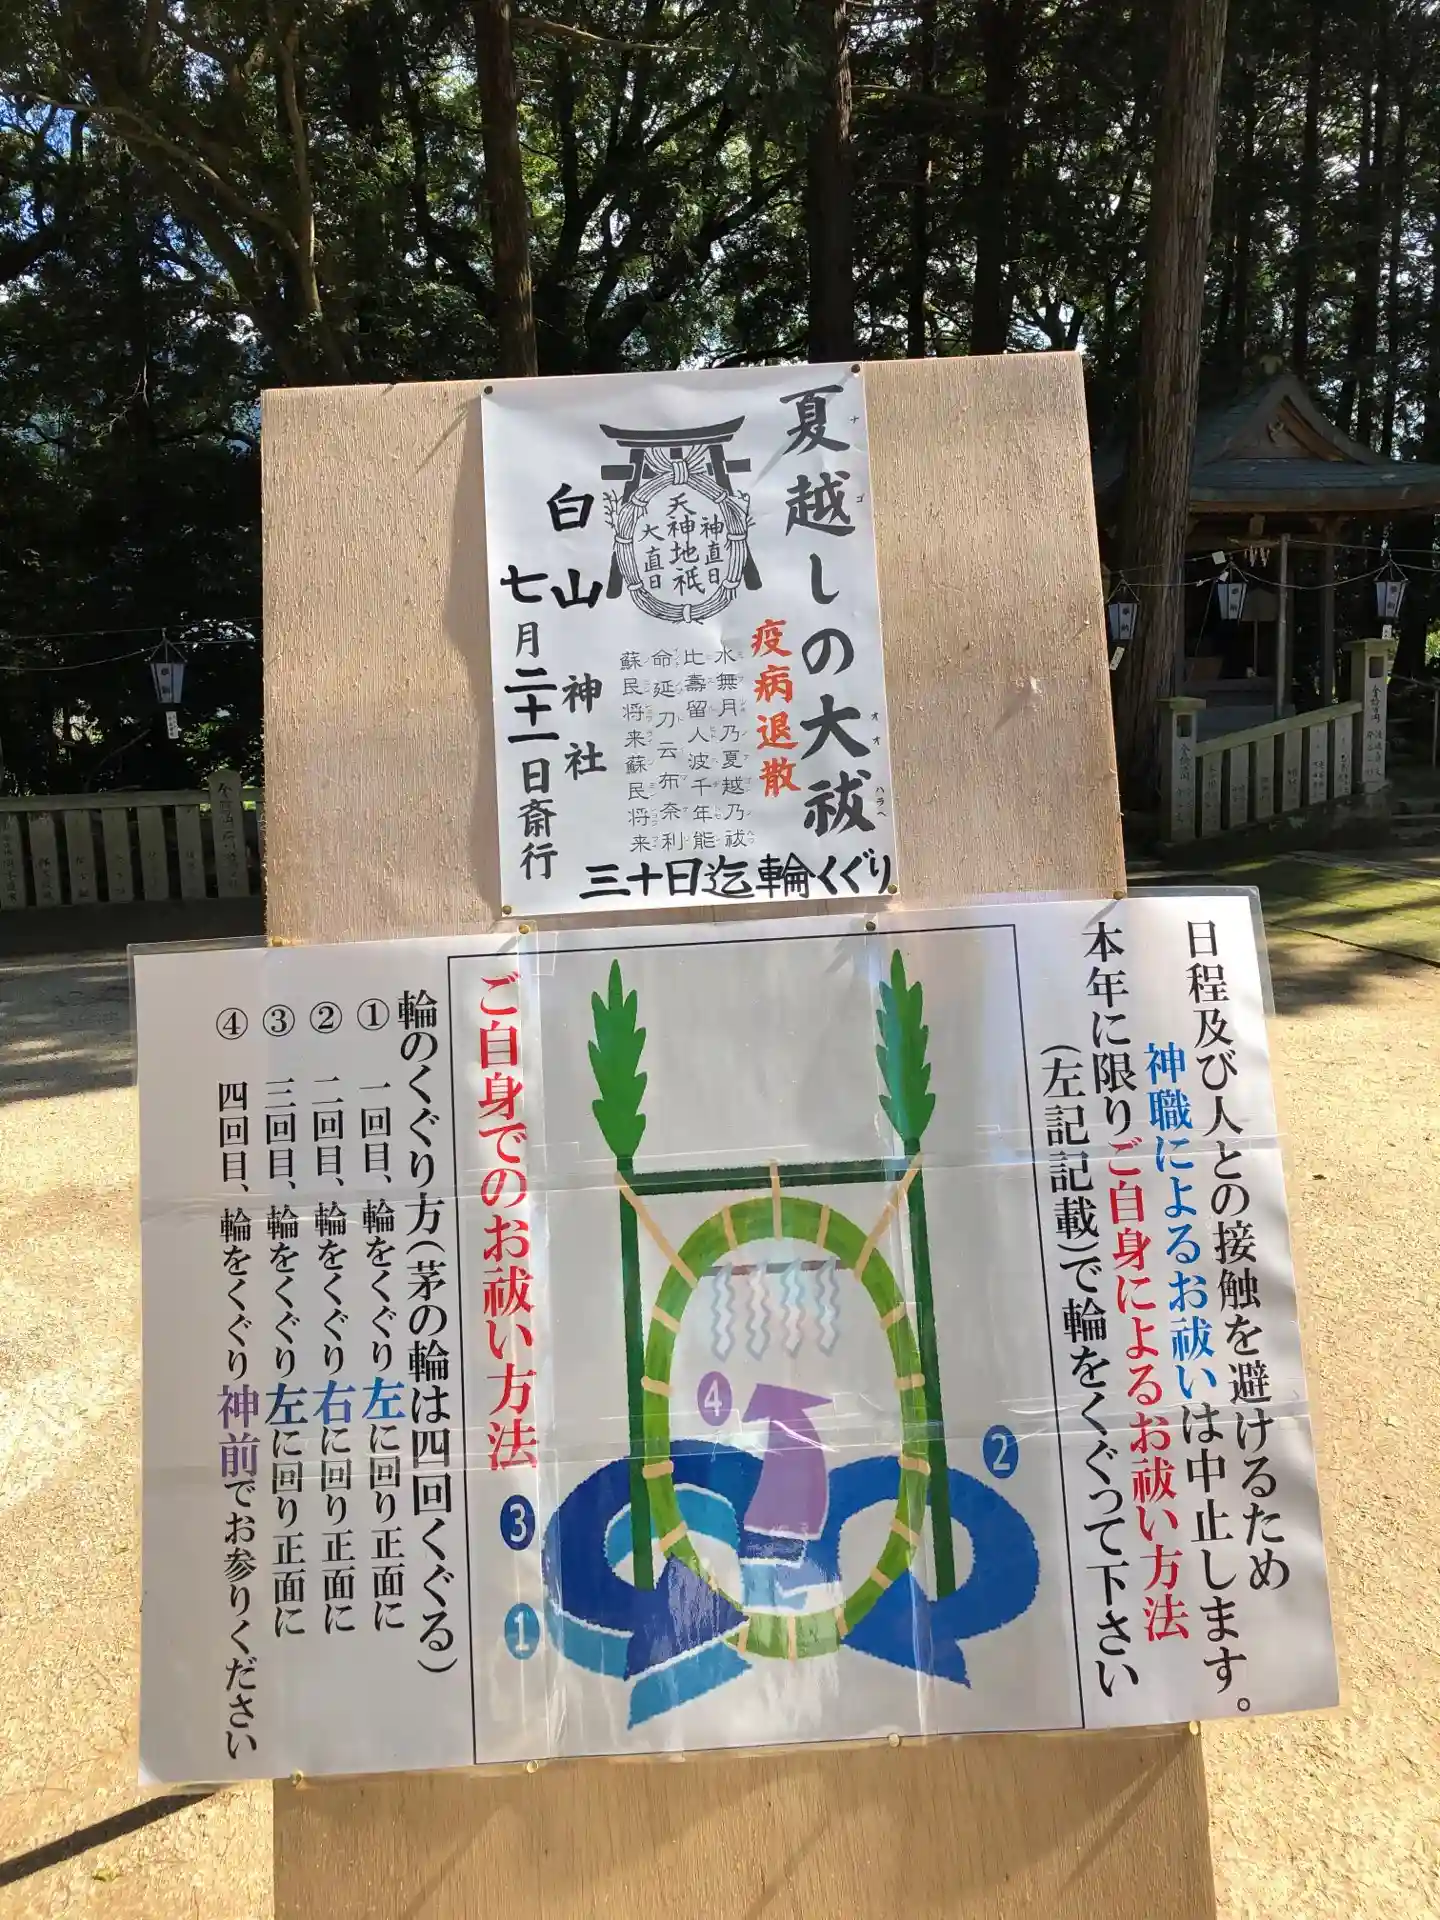 夏越しの大祓
ナ
ゴ
オオ
ハラヘ
疫病退散
天神地祇
神直日
大直日
水無月乃夏越乃祓
比壽留人波千年能
命延刀云布奈利
蘇民将来蘇民将来
白山神社
七月二十一日斎行
三十日迄輪くぐり
日程及び人との接触を避けるため
神職によるお祓いは中止します。
本年に限りご自身によるお祓い方法
(左記記載)で輪をくぐって下さい
④
②
③
①
ご自身でのお祓い方法
輪のくぐり方(茅の輪は四回くぐる)
① 一回目、輪をくぐり左に回り正面に
② 二回目、輪をくぐり右に回り正面に
③ 三回目、輪をくぐり左に回り正面に
④ 四回目、輪をくぐり神前でお参りください